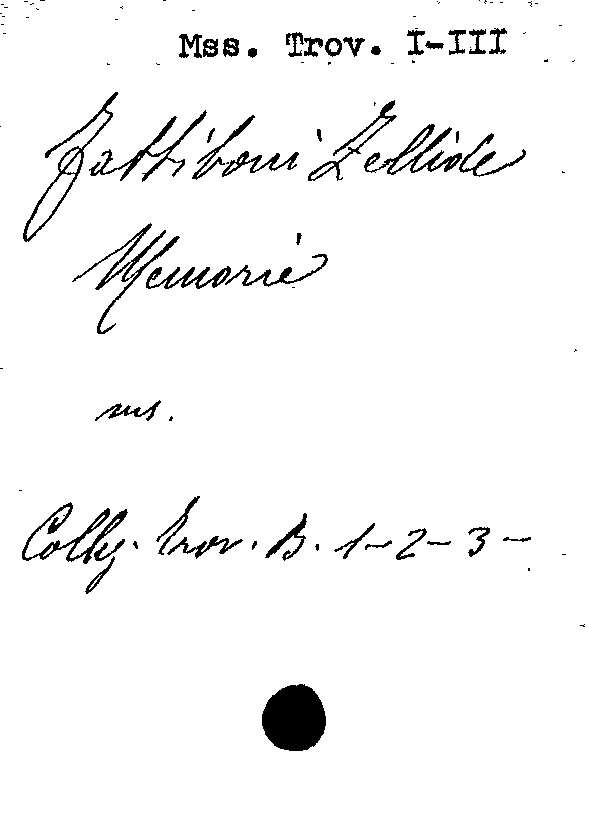 Mss. Trov. I-III
Fattiboni Zellide
Memorie
ms.
Trov. B. 1-2-3-